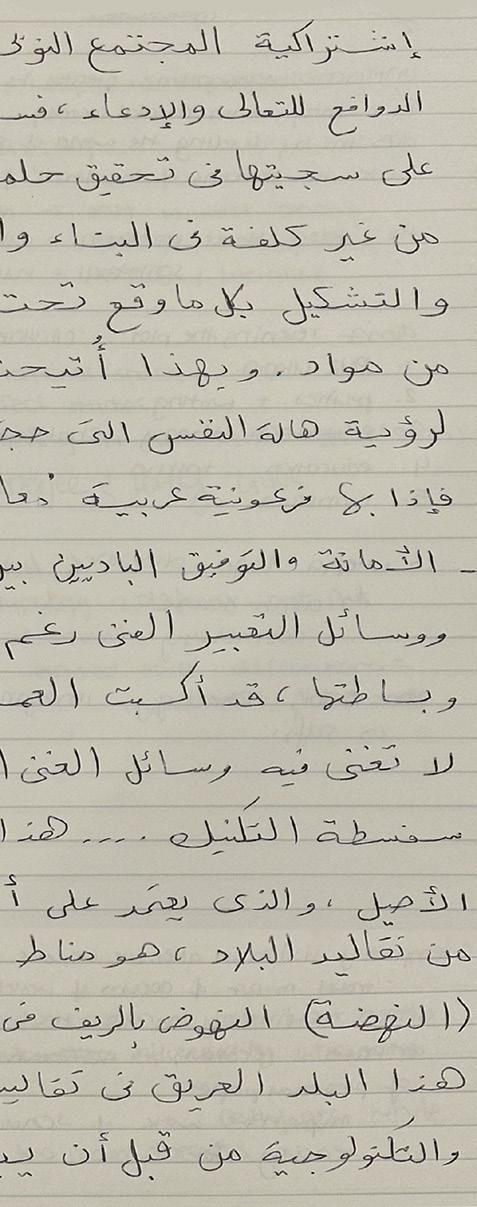 إشتراكية المجتمع
الدوافع للتعالى والإدعاء ،
على سجيتها فى تحقيق
من غير كلفة فى البناء
والتشكيل بكل ما وقع تحت
من مواد . وبهذا
لرؤية هالة النفس التى
فإذا بها فرعونية عربية
ـ الأمانة والتوفيق الباديين
ووسائل التعبير الفنى رغم
وبساطتها ، قد أكسبت
لا تغنى فيه وسائل الغنى
سفسطة التكنيك .... هذا
الأصيل ، والذى يعتمد على
من تقاليد البلاد ، هو مناط
(النهضة) النهوض بالريف فى
هذا البلد العريق فى
والتكنولوجية من قبل أن